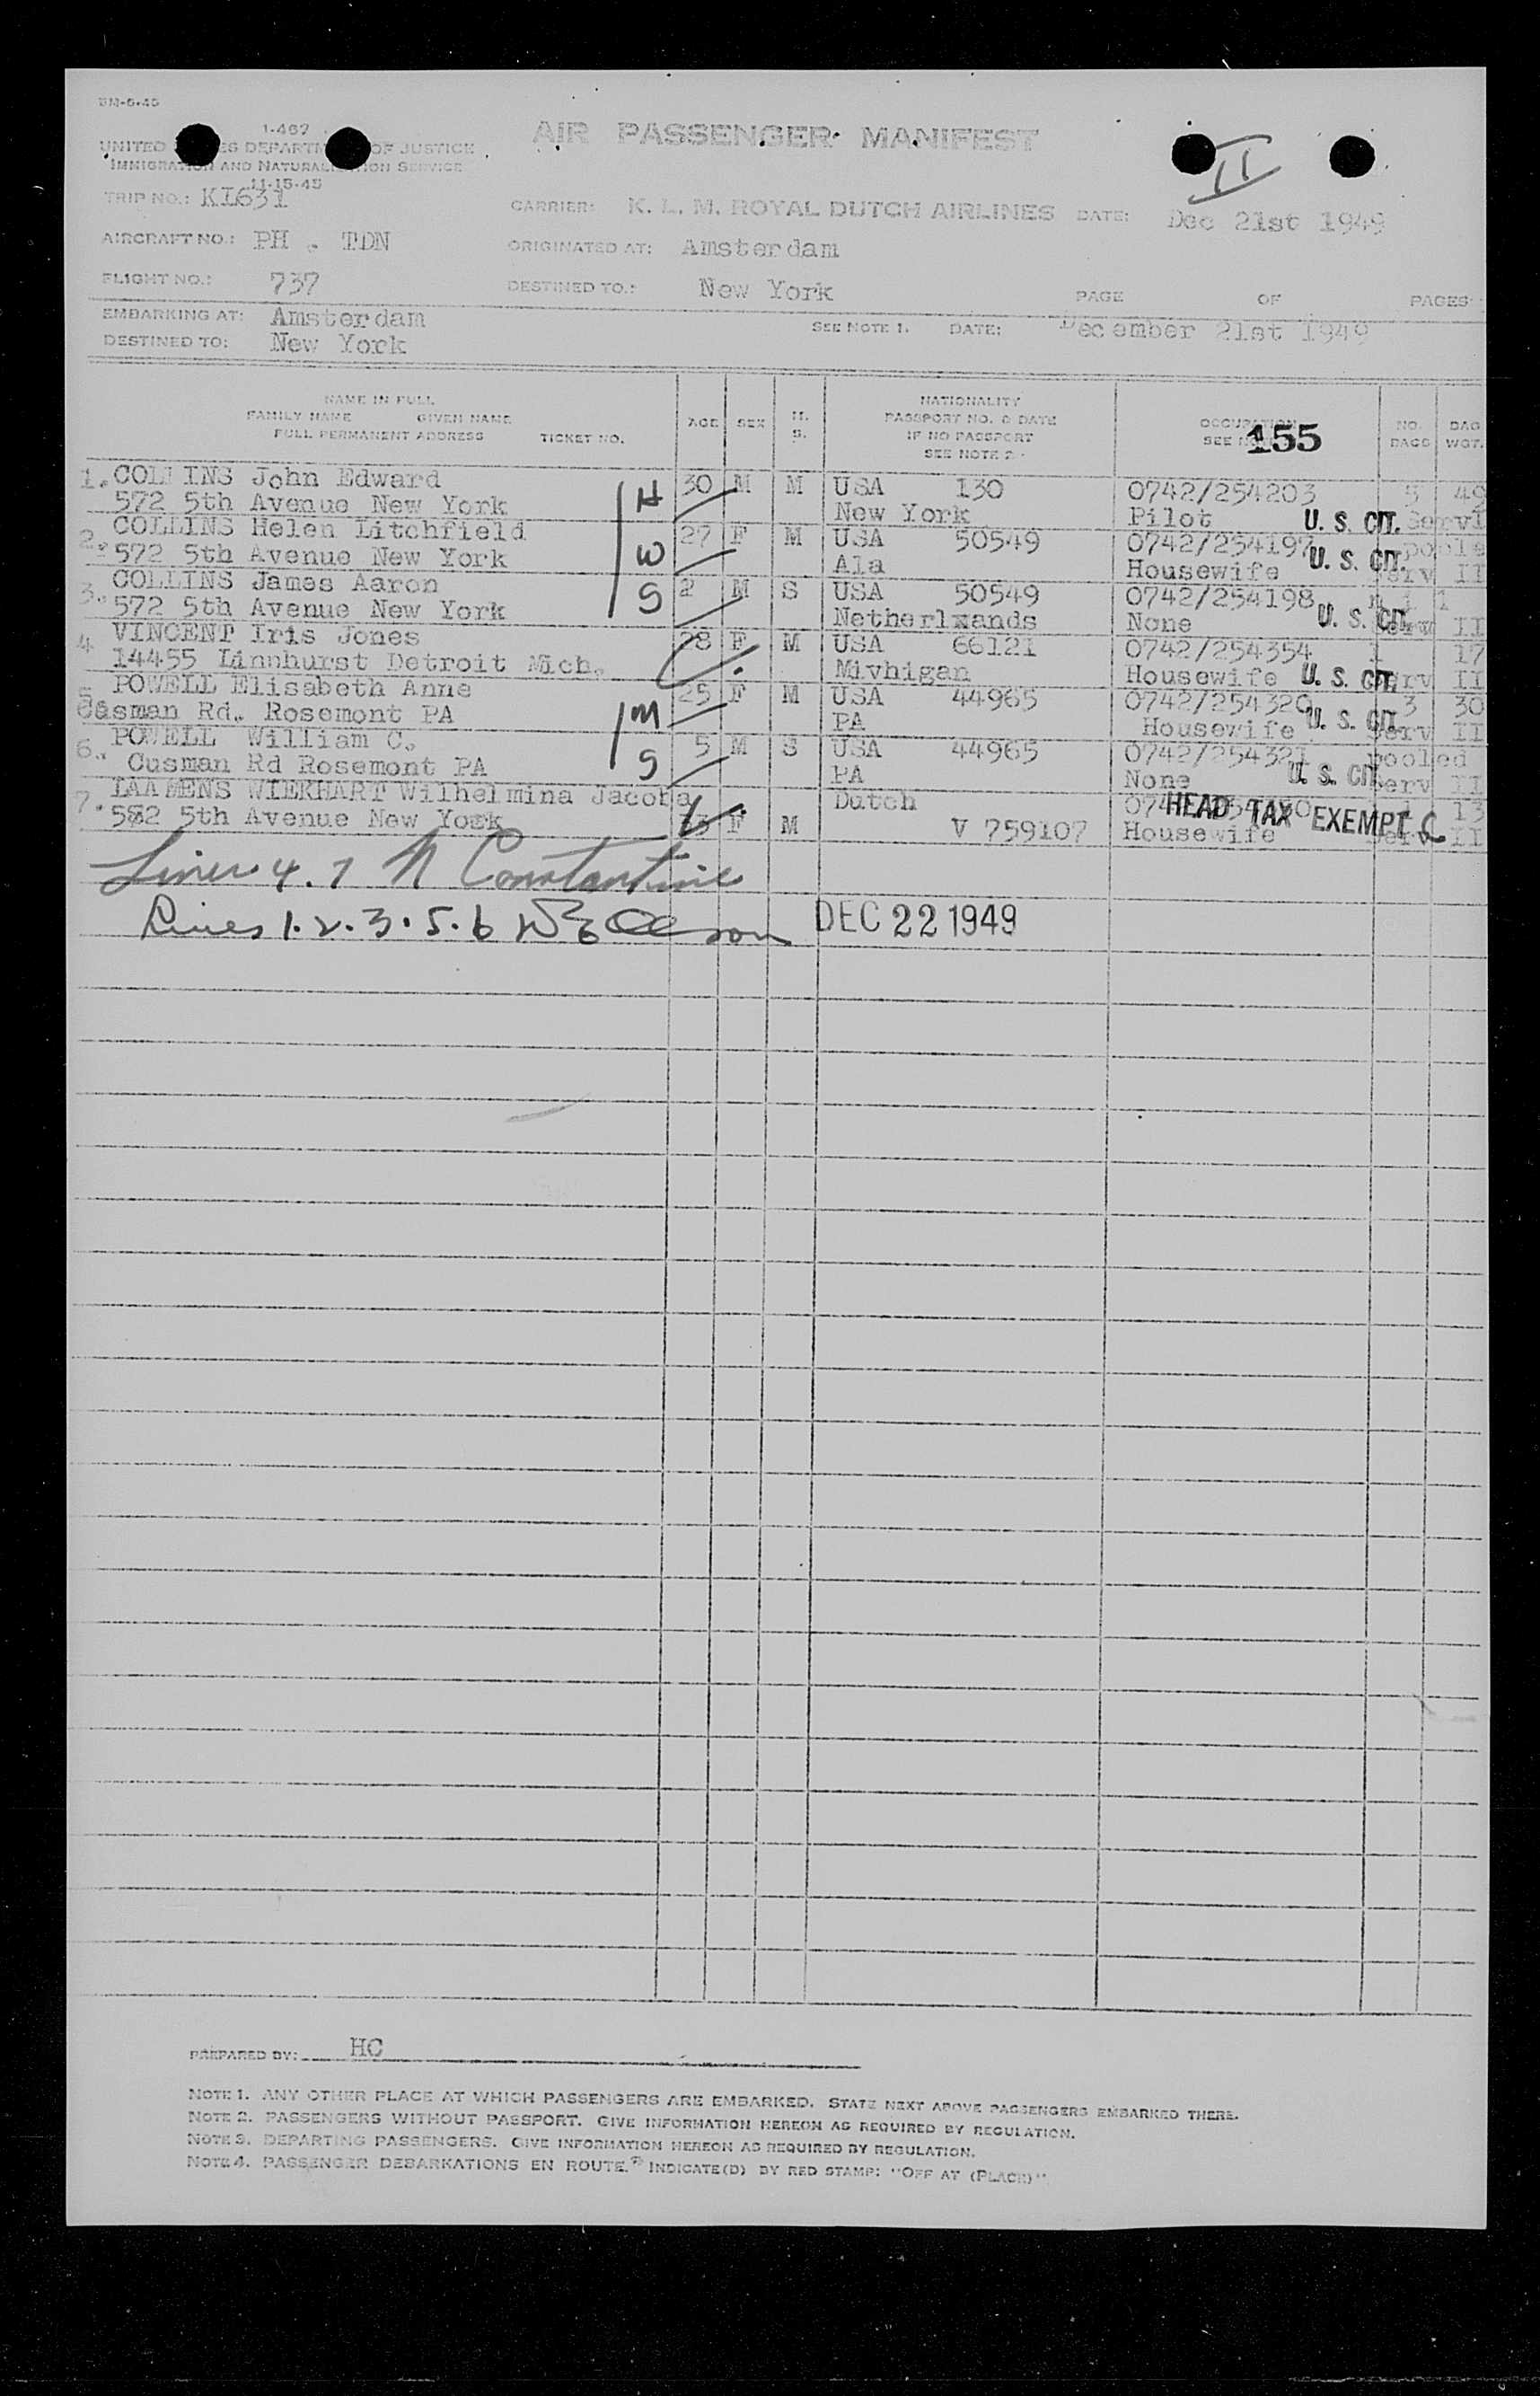 1-467
UNITED STATES DEPARTMENT OF JUSTICE
IMMIGRATION AND NATURALIZATION SERVICE
11-15-45
AIR PASSENGER MANIFEST
II
TRIP NO.: KL631
CARRIER: K. L. M. ROYAL DUTCH AIRLINES DATE: Dec 21st 1949
AIRCRAFT NO.: PH . TDN
ORIGINATED AT: Amsterdam
FLIGHT NO.: 737
DESTINED TO.: New York PAGE OF PAGES
EMBARKING AT: Amsterdam
SEE NOTE 1. DATE: December 21st 1949
DESTINED TO: New York
NAME IN FULL
FAMILY NAME GIVEN NAME
FULL PERMANENT ADDRESS TICKET NO.
AGE SEX M. S.
NATIONALITY
PASSPORT NO. & DATE
IF NO PASSPORT
SEE NOTE 2.
155
NO. BAGS BAG WGT.
1. COLLINS John Edward H 30 M M USA 130 0742/254203 5 49
572 5th Avenue New York New York Pilot U. S. CIT. Servi
2. COLLINS Helen Litchfield 27 F M USA 50549 0742/254197 poole
572 5th Avenue New York W Ala Housewife U. S. CIT. Serv II
3. COLLINS James Aaron 2 M S USA 50549 0742/254198 n i l
572 5th Avenue New York S Netherlxands None U. S. CIT. Serv II
4 VINCENT Iris Jones 28 F M USA 66121 0742/254354 1 17
14455 Linnhurst Detroit Mich. Mivhigan Housewife U. S. CIT. Serv II
5 POWELL Elisabeth Anne M 25 F M USA 44965 0742/254320 3 30
Cusman Rd. Rosemont PA PA Housewife U. S. CIT. Serv II
6. POWELL William C. 5 M S USA 44965 0742/254321 pooled
Cusman Rd Rosemont PA S PA None U. S. CIT. Serv II
7. LAAMENS WIEKHART Wilhelmina Jacoba Dutch HEAD TAX EXEMPT 1 13
572 5th Avenue New York F M V 759107 Housewife Serv II
Lines 4. 7 N Constantine
Lines 1. 2. 3. 5. 6
DEC 22 1949
PREPARED BY: HC
NOTE 1. ANY OTHER PLACE AT WHICH PASSENGERS ARE EMBARKED. STATE NEXT ABOVE PASSENGERS EMBARKED THERE.
NOTE 2. PASSENGERS WITHOUT PASSPORT. GIVE INFORMATION HEREON AS REQUIRED BY REGULATION.
NOTE 3. DEPARTING PASSENGERS. GIVE INFORMATION HEREON AS REQUIRED BY REGULATION.
NOTE 4. PASSENGER DEBARKATIONS EN ROUTE. INDICATE(D) BY RED STAMP: "OFF AT (PLACE)"